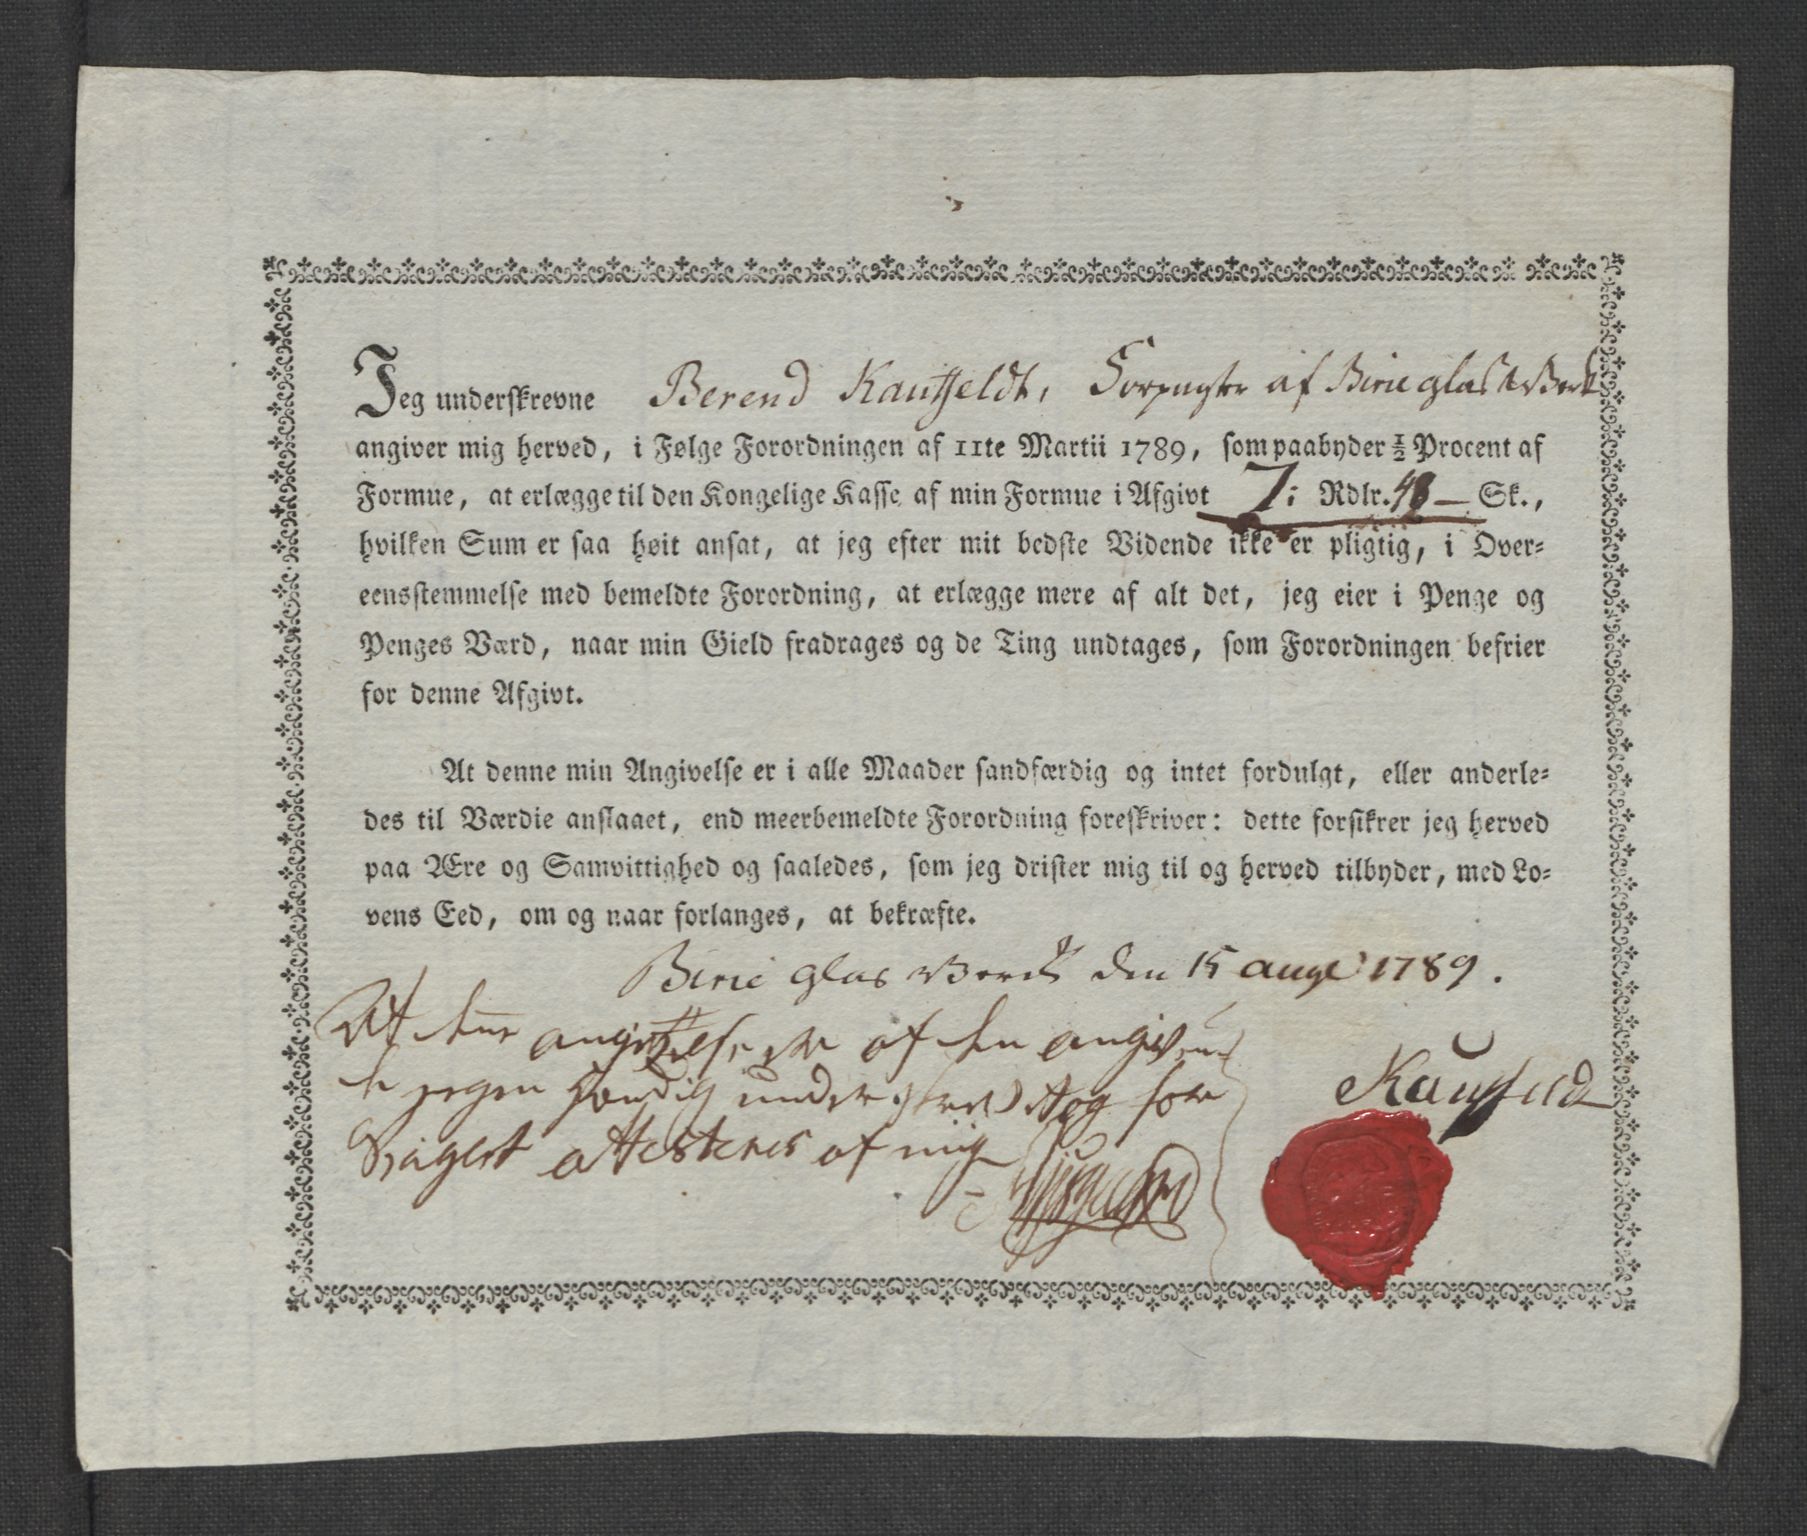 Jeg underskrevne Berend Kauffeldt, Forpagter af Birie glas Werk
angiver mig herved, i Følge Forordningen af 11te Martii 1789, som paabyder ½ Procent af
Formue, at erlægge til den Kongelige Kasse af min Formue i Afgivt 7: Rdlr. 48 — Sk.,
hvilken Sum er saa høit ansat, at jeg efter mit bedste Vidende ikke er pligtig, i Over-
eensstemmelse med bemeldte Forordning, at erlægge mere af alt det, jeg eier i Penge og
Penges Værd, naar min Gield fradrages og de Ting undtages, som Forordningen befrier
for denne Afgivt.
At denne min Angivelse er i alle Maader sandfærdig og intet fordulgt, eller anderle-
des til Værdie anslaaet, end meerbemeldte Forordning foreskriver: dette forsikrer jeg herved
paa Ære og Samvittighed og saaledes, som jeg drister mig til og herved tilbyder, med Lo-
vens Eed, om og naar forlanges, at bekræfte.
Birie glas Werck den 15 augl 1789.
At denne angivelse er af den angivende
egen hændig underskrevet og for
Seiglet attesteres af mig
Kauffeldt